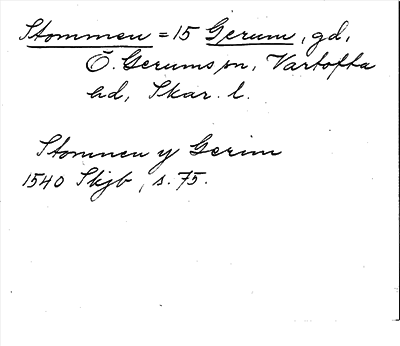 Stommen = 15 Gerum, gd,
Ö. Gerums sn, Vartofta
hd, Skar. l.
Stommen y Gerim
1540 Skjb, s. 75.